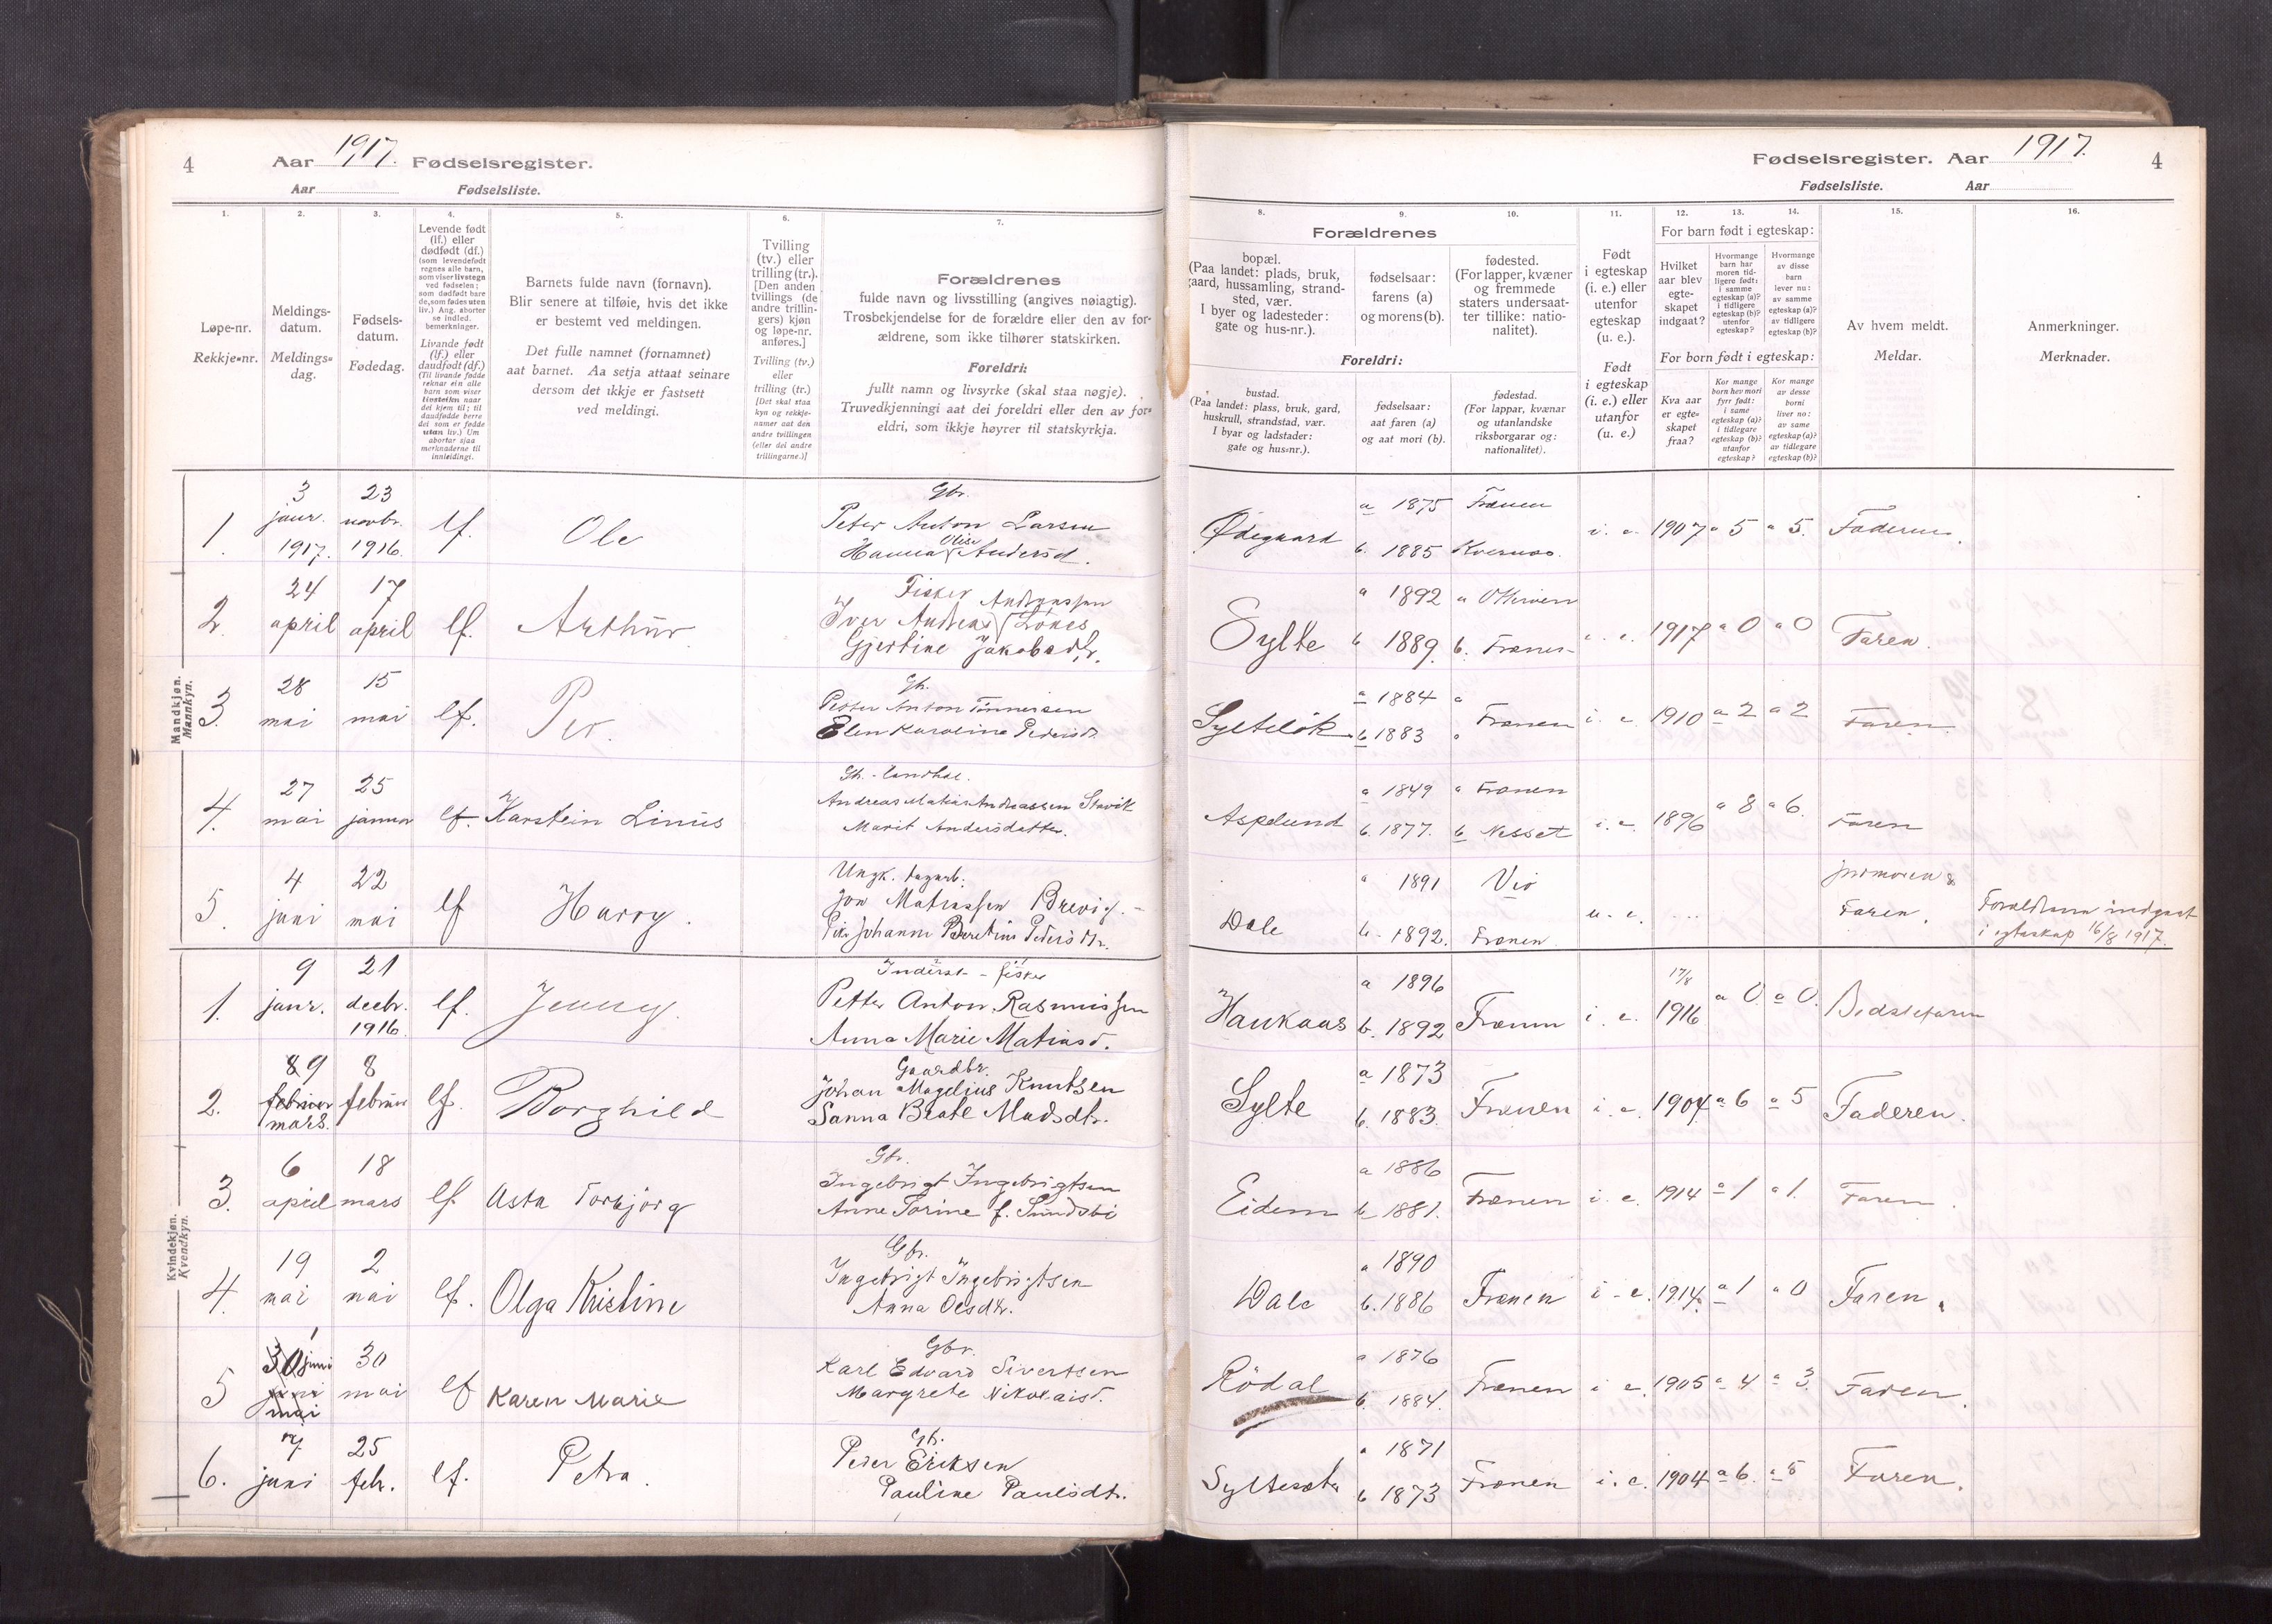 4 Aar 1917. Fødselsregister.
Aar Fødselsliste.
Fødselsregister. Aar 1917. 4
Fødselsliste. Aar
1. 2. 3. 4. 5. 6. 7.
Løpe-nr.
Rekkje-nr.
Meldings-
datum.
Meldings-
dag.
Fødsels-
datum.
Fødedag.
Levende født
(lf.) eller
dødfødt (df.)
(som levendefødt
regnes alle barn,
som viser livstegn
ved fødselen;
som dødfødt bare
de, som fødes uten
liv.) Ang. aborter
se indled.
bemerkninger.
Livande født
(lf.) eller
daudfødt (df.)
(Til livande fødde
reknar ein alle
barn som viser
livsteikn naar
dei kjem til; til
daudfødde berre
dei som er fødde
utan liv.) Um
abortar sjaa
merknaderne til
innleidingi.
Barnets fulde navn (fornavn).
Blir senere at tilføie, hvis det ikke
er bestemt ved meldingen.
Det fulle namnet (fornamnet)
aat barnet. Aa setja attaat seinare
dersom det ikkje er fastsett
ved meldingi.
Tvilling
(tv.) eller
trilling (tr.).
[Den anden
tvillings (de
andre trillin-
gers) kjøn
og løpe-nr.
anføres.]
Tvilling (tv.)
eller
trilling (tr.)
[Det skal staa
kyn og rekkje-
numer aat den
andre tvillingen
(eller dei andre
trillingarne.)]
Forældrenes
fulde navn og livsstilling (angives nøiagtig).
Trosbekjendelse for de forældre eller den av for-
ældrene, som ikke tilhører statskirken.
Foreldri:
fullt namn og livsyrke (skal staa nøgje).
Truvedkjenningi aat dei foreldri eller den av for-
eldri, som ikkje høyrer til statskyrkja.
8. 9. 10. 11. 12. 13. 14. 15. 16.
Forældrenes
bopæl.
(Paa landet: plads, bruk,
gaard, hussamling, strand-
sted, vær.
I byer og ladesteder:
gate og hus-nr.).
fødselsaar:
farens (a)
og morens (b).
fødested.
(For lapper, kvæner
og fremmede
staters undersaat-
ter tillike: natio-
nalitet).
Foreldri:
bustad.
(Paa landet: plass, bruk, gard,
huskrull, strandstad, vær.
I byar og ladstader:
gate og hus-nr.).
fødselsaar:
aat faren (a)
og aat mori (b).
fødestad.
(For lappar, kvænar
og utanlandske
riksborgarar og:
nationalitet).
Født
i egteskap
(i. e.) eller
utenfor
egteskap
(u. e.).
Født
i egteskap
(i. e.) eller
utanfor
(u. e.)
For barn født i egteskap:
Hvilket
aar blev
egte-
skapet
indgaat?
Hvormange
barn har
moren tid-
ligere født:
i samme
egteskap (a)?
i tidligere
egteskap (b)?
utenfor
egteskap?
Hvormange
av disse
barn
lever nu:
av samme
egteskap (a)?
av tidligere
egteskap (b)?
For born født i egteskap:
Kva aar
er egte-
skapet
fraa?
Kor mange
born hev mori
fyrr født:
i same
egteskap (a)?
i tidlegare
egteskap (b)?
utanfor
egteskap?
Kor mange
av desse
borni
liver no:
av same
egteskap (a)?
av tidlegare
egteskap (b)?
Av hvem meldt.
Meldar.
Anmerkninger.
Merknader.
Mandkjøn.
Mannkyn.
1. 3 janr. 1917. 23 novbr. 1916. lf. Ole
Gbr.
Peter Anton Larsen
Hanna Olise Andersd.
Ødegaard a 1875 Frænen b. 1885 i. e. 1907 a 5 a 5.
2. 24 april 17 april lf. Arthur
Fisker
Iver Andreas Andreassen
Gjertine Jakobsdtr.
Sylte a 1892 b 1889. b. Frænen 1917 a 0 a 0 Faren.
3. 28 mai 15 mai lf. Per.
Gb.
Petter Anton Tønnersen
Elen Karoline Pedersdr.
a 1884 b 1883 Frænen i. e. 1910 a 2 a 2 Faren.
4. 27 mai 25 januar lf. Karstein Linus
Andreas Matias Andreassen Stavik
Marit Andersdatter.
Aspelund a 1849 a Frænen b. 1877. b Nesset i. e. 1896 a 8 a 6. Faren
5. 4 juni 22 mai lf Harry.
Ungk. dagarb.
Jon Matiassen Brevig.
Pike Johanne Beretine Pedersdtr.
Dale a 1891 b. 1892. Frænen u. e. jormoren &
Faren.
Forældrene indgaat
i egteskap 16/8 1917.
Kvindekjøn.
Kvendkyn.
1. 9 janr. 21 decbr. 1916. lf. Jenny.
Inderst - fisker
Petter Anton Rasmussen
Anna Marie Matiasd.
Haukaas a 1896 b. 1892 Frænen i. e. 17/8 1916 a 0. a 0.
2. 8 9 februar mars. 8 februar lf. Borghild
Gaardbr.
Johan Magelius Knutsen
Sanna Beate Madsdtr.
Sylte a 1873 b. 1883. Frænen i. e. 1904 a 6 a 5 Faderen.
3. 6 april 18 mars lf. Asta Torbjørg
Gbr.
Ingebrigt Ingebrigtsen
Anne Torine f. Sundsbø
Eidem a 1886 b 1881. Frænen i. e. 1914 a 1 a 1. Faren.
4. 19 mai 2 mai lf. Olga Kristine
Gbr.
Ingebrigt Ingebrigtsen
Anna Olesdtr.
Dale a 1890 b. 1886 Frænen i. e. 1914. a 1 a 0 Faren.
5 30 1 juni juni mai 30 mai lf Karen Marie
Gbr.
Karl Edvard Sivertsen
Margrete Nikolaisd.
Rödal a 1876 b. 1884. Frænen i e. 1905 a 4 a 3. Faren.
6. 7 juni 25 febr. lf. Petra.
Gb.
Peder Eriksen
Pauline Paulsdtr.
a 1871 b 1873 Frænen i. e. 1904 a 6. a 5 Faren.